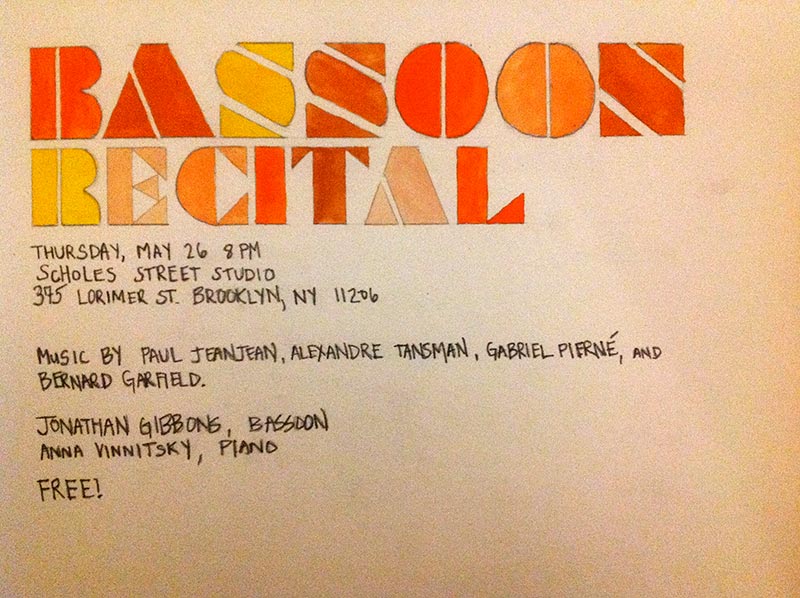 BASSOON
RECITAL
THURSDAY, MAY 26 8 PM
SCHOLES STREET STUDIO
375 LORIMER ST. BROOKLYN, NY 11206
MUSIC BY PAUL JEANJEAN, ALEXANDRE TANSMAN, GABRIEL PIERNÉ, AND
BERNARD GARFIELD.
JONATHAN GIBBONS, BASSOON
ANNA VINNITSKY, PIANO
FREE!